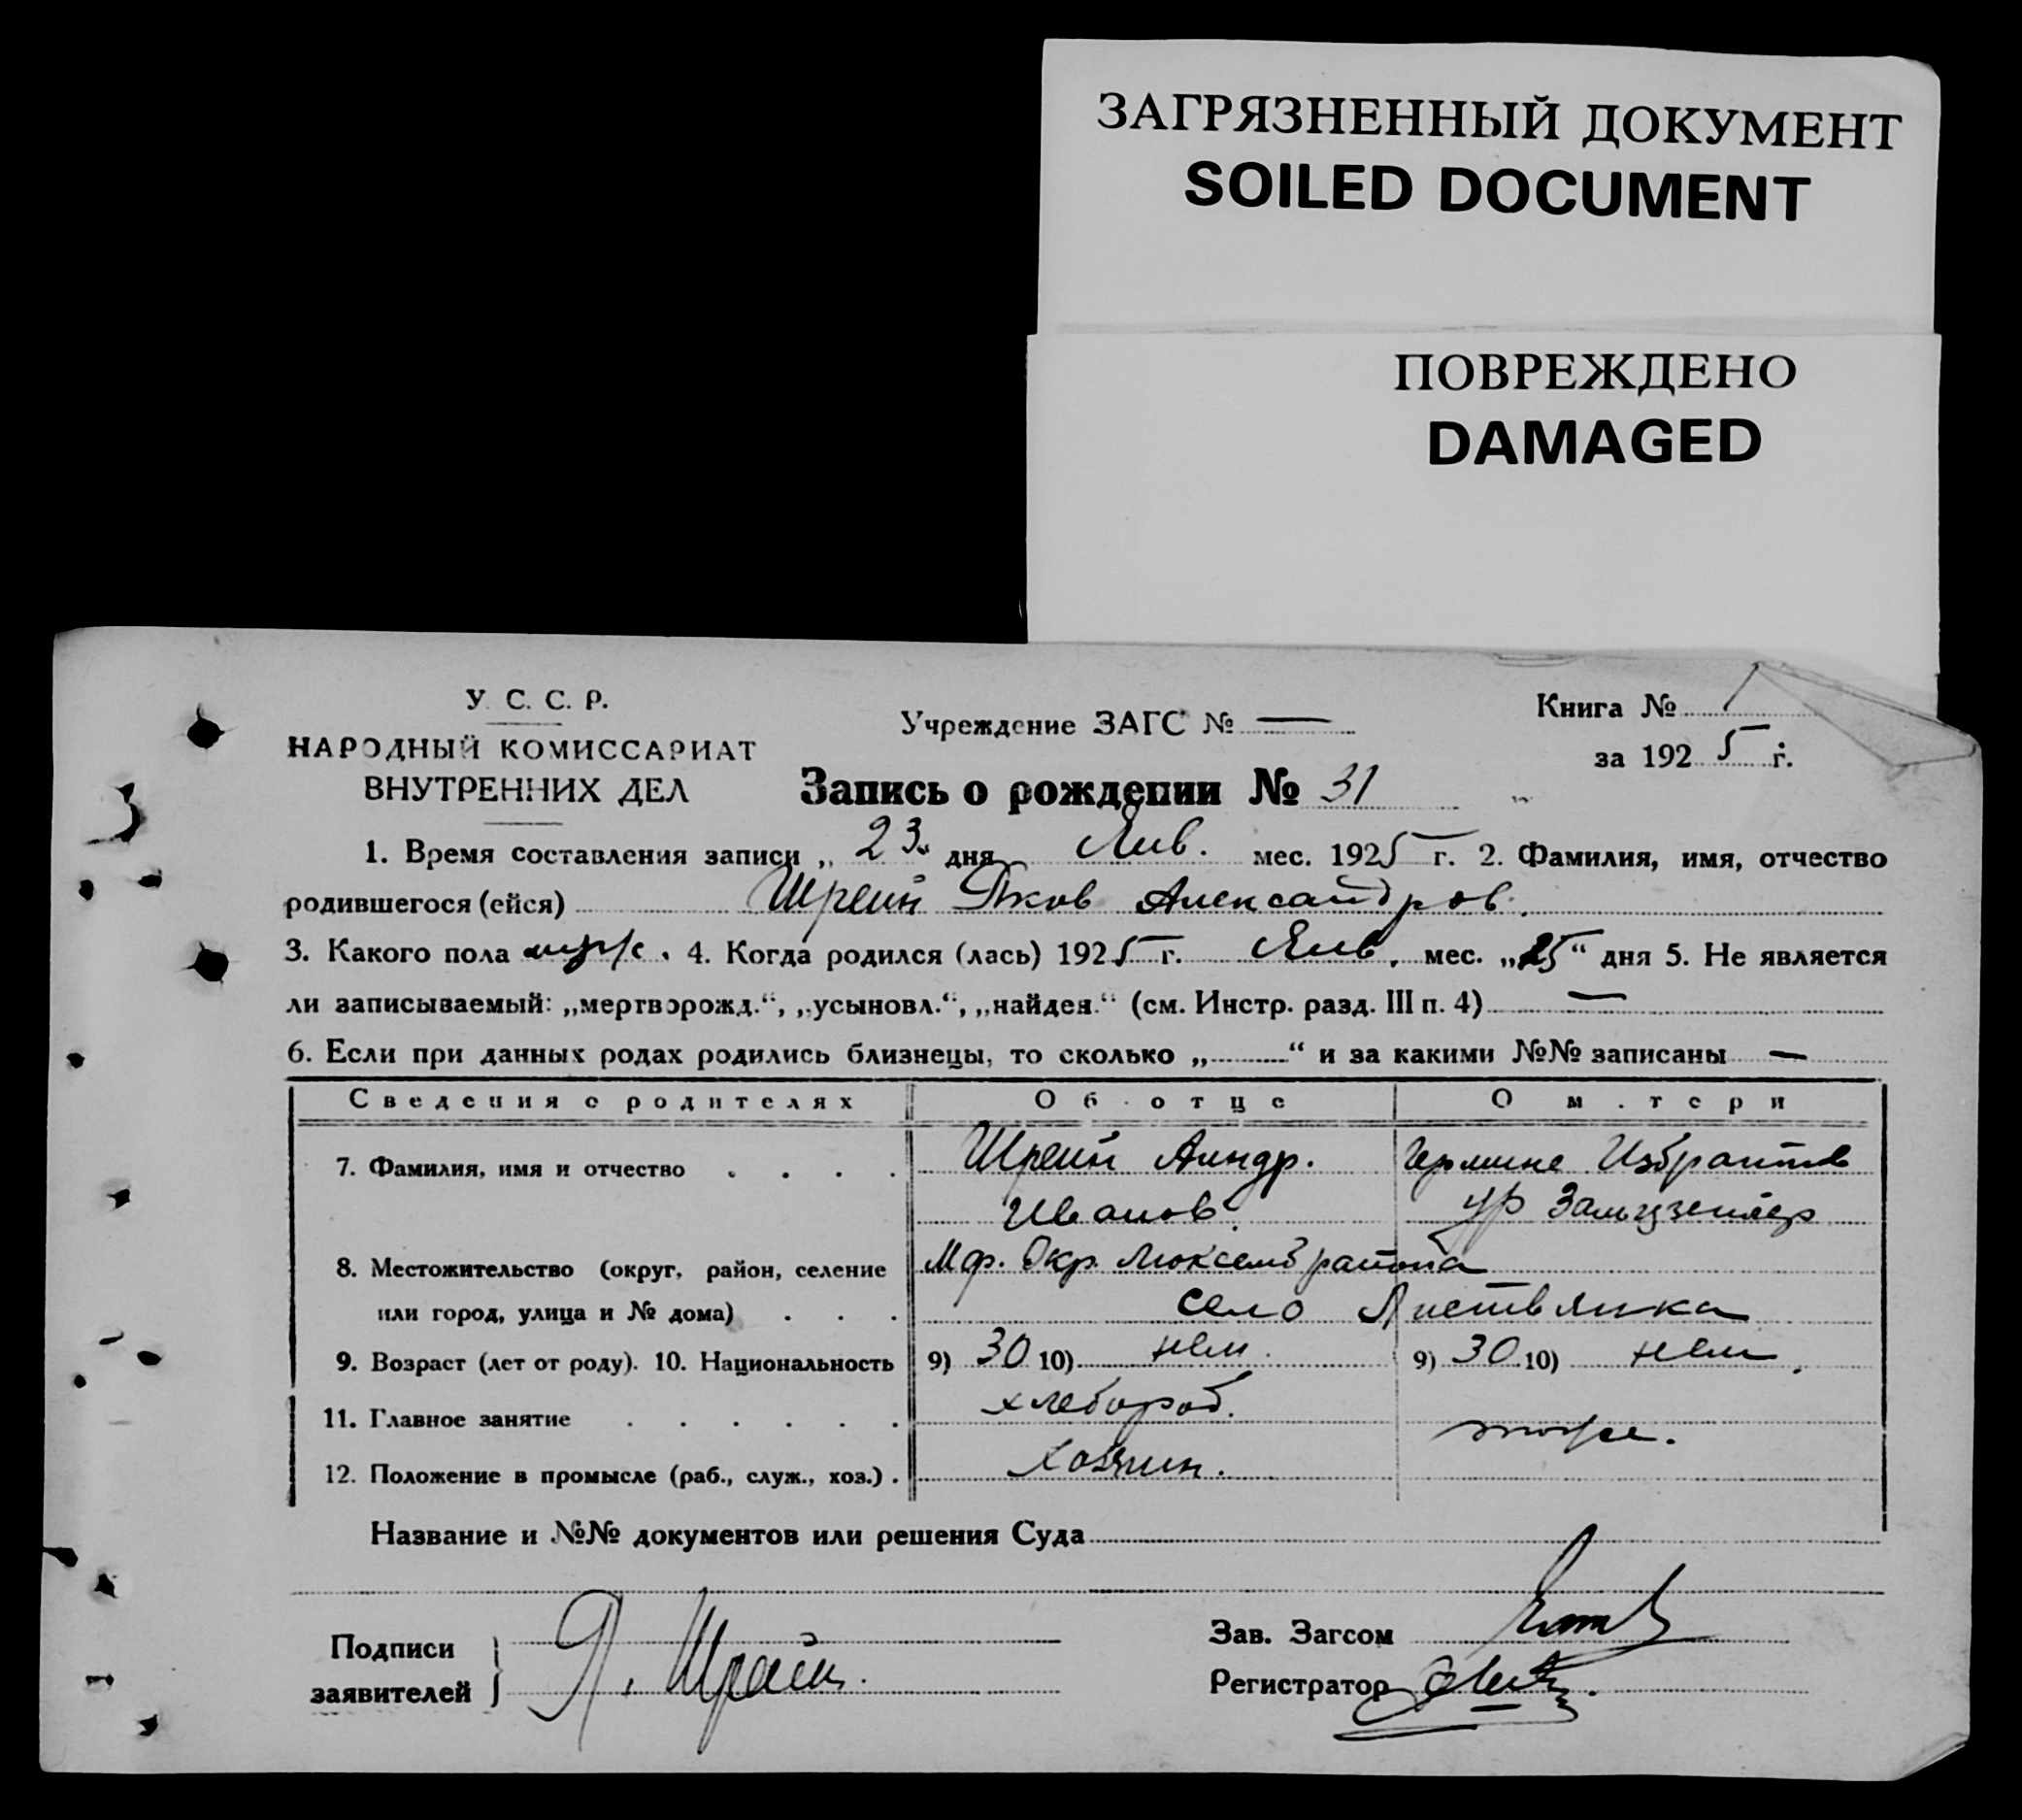 ЗАГРЯЗНЕННЫЙ ДОКУМЕНТ
SOILED DOCUMENT
ПОВРЕЖДЕНО
DAMAGED
У. С. С. Р.
НАРОДНЫЙ КОМИССАРИАТ
ВНУТРЕННИХ ДЕЛ
Учреждение ЗАГС № —
Книга № 1
за 1925 г.
Запись о рождении № 31
1. Время составления записи „ 23 дня Янв. мес. 1925 г. 2. Фамилия, имя, отчество
родившегося (ейся) Шрейн Яков Александров.
3. Какого пола муж. 4. Когда родился (лась) 1925 г. Янв. мес. „15“ дня 5. Не является
ли записываемый: „мертворожд.“, „усыновл.“, „найден.“ (см. Инстр. разд. III п. 4) —
6. Если при данных родах родились близнецы, то сколько „ “ и за какими №№ записаны —
Сведения о родителях Об отце О матери
7. Фамилия, имя и отчество . . . . Шрейн
Иванов. ур
8. Местожительство (округ, район, селение Мф. Окр. Люксемб района
или город, улица и № дома) . . . село Листвянка
9. Возраст (лет от роду). 10. Национальность 9) 30 10) нем. 9) 30 10) нем.
11. Главное занятие . . . . . . хлебороб.
12. Положение в промысле (раб., служ., хоз.) . Хозяин.
тоже.
Название и №№ документов или решения Суда
Подписи
заявителей } Я. Шрейн.
Зав. Загсом
Регистратор